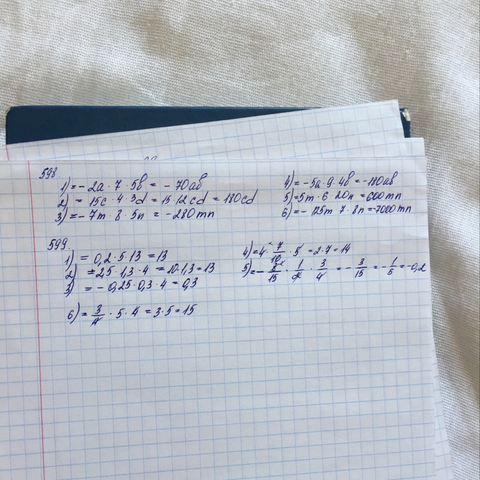 598
1) = -2a · 7 · 5b = -70ab
2) = 15c · 4 · 3d = 15 · 12cd = 180cd
3) = -7m · 8 · 5n = -280mn
4) = -5a · 9 · 4b = -180ab
5) = 5m · 6 · 20n = 600mn
6) = -125m · 7 · 8n = -7000mn
599
1) = 0,2 · 5 · 13 = 13
2) = 25 · 1,3 · 4 = 10 · 1,3 = 13
3) = -0,25 · 0,3 · 4 = 0,3
4) = 4 · 7/10 · 5 = 2 · 7 = 14
5) = - /15 · 1/ · 3/4 = -3/15 = -1/5 = -0,2
6) = 3/4 · 5 · 4 = 3 · 5 = 15